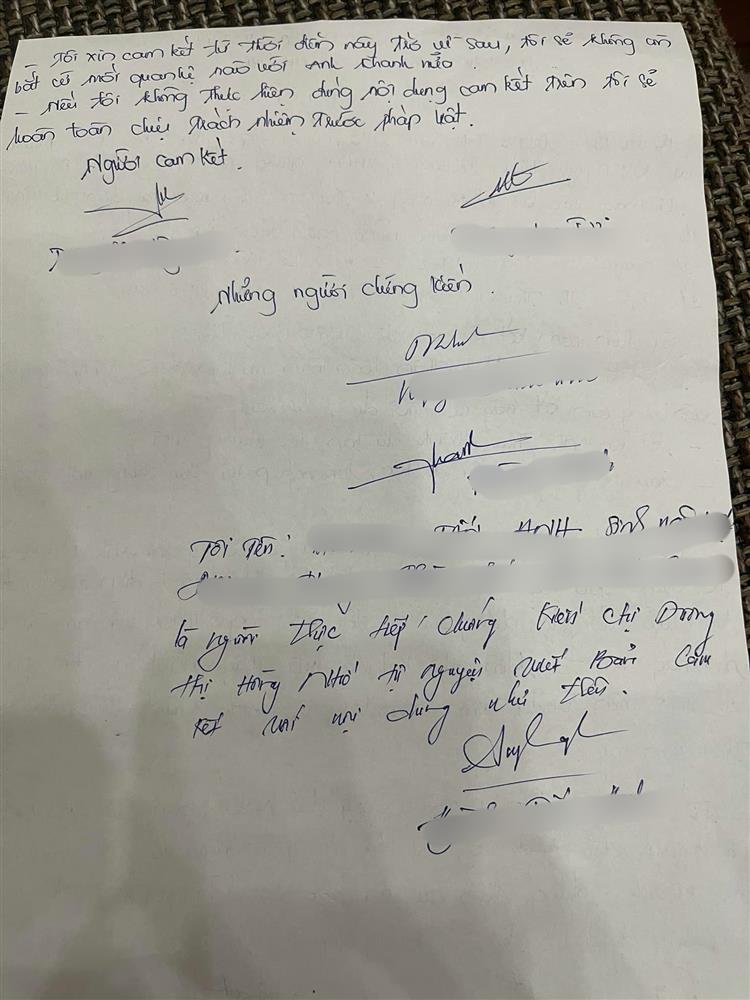 - Tôi xin cam kết từ thời điểm này trở về sau, tôi sẻ không còn
bất cứ mối quan hệ nào với Anh Khanh nửa.
- Nếu tôi không thực hiện đúng nội dung cam kết trên tôi sẻ
hoàn toàn chịu trách nhiệm trước pháp luật.
Người cam kết.
Những người chứng kiến.
Khanh
Tôi tên:
là người trực tiếp chứng kiến chị Dương
thị Hồng Nhớ tự nguyện viết Bản Cam
kết với nội dung như trên.